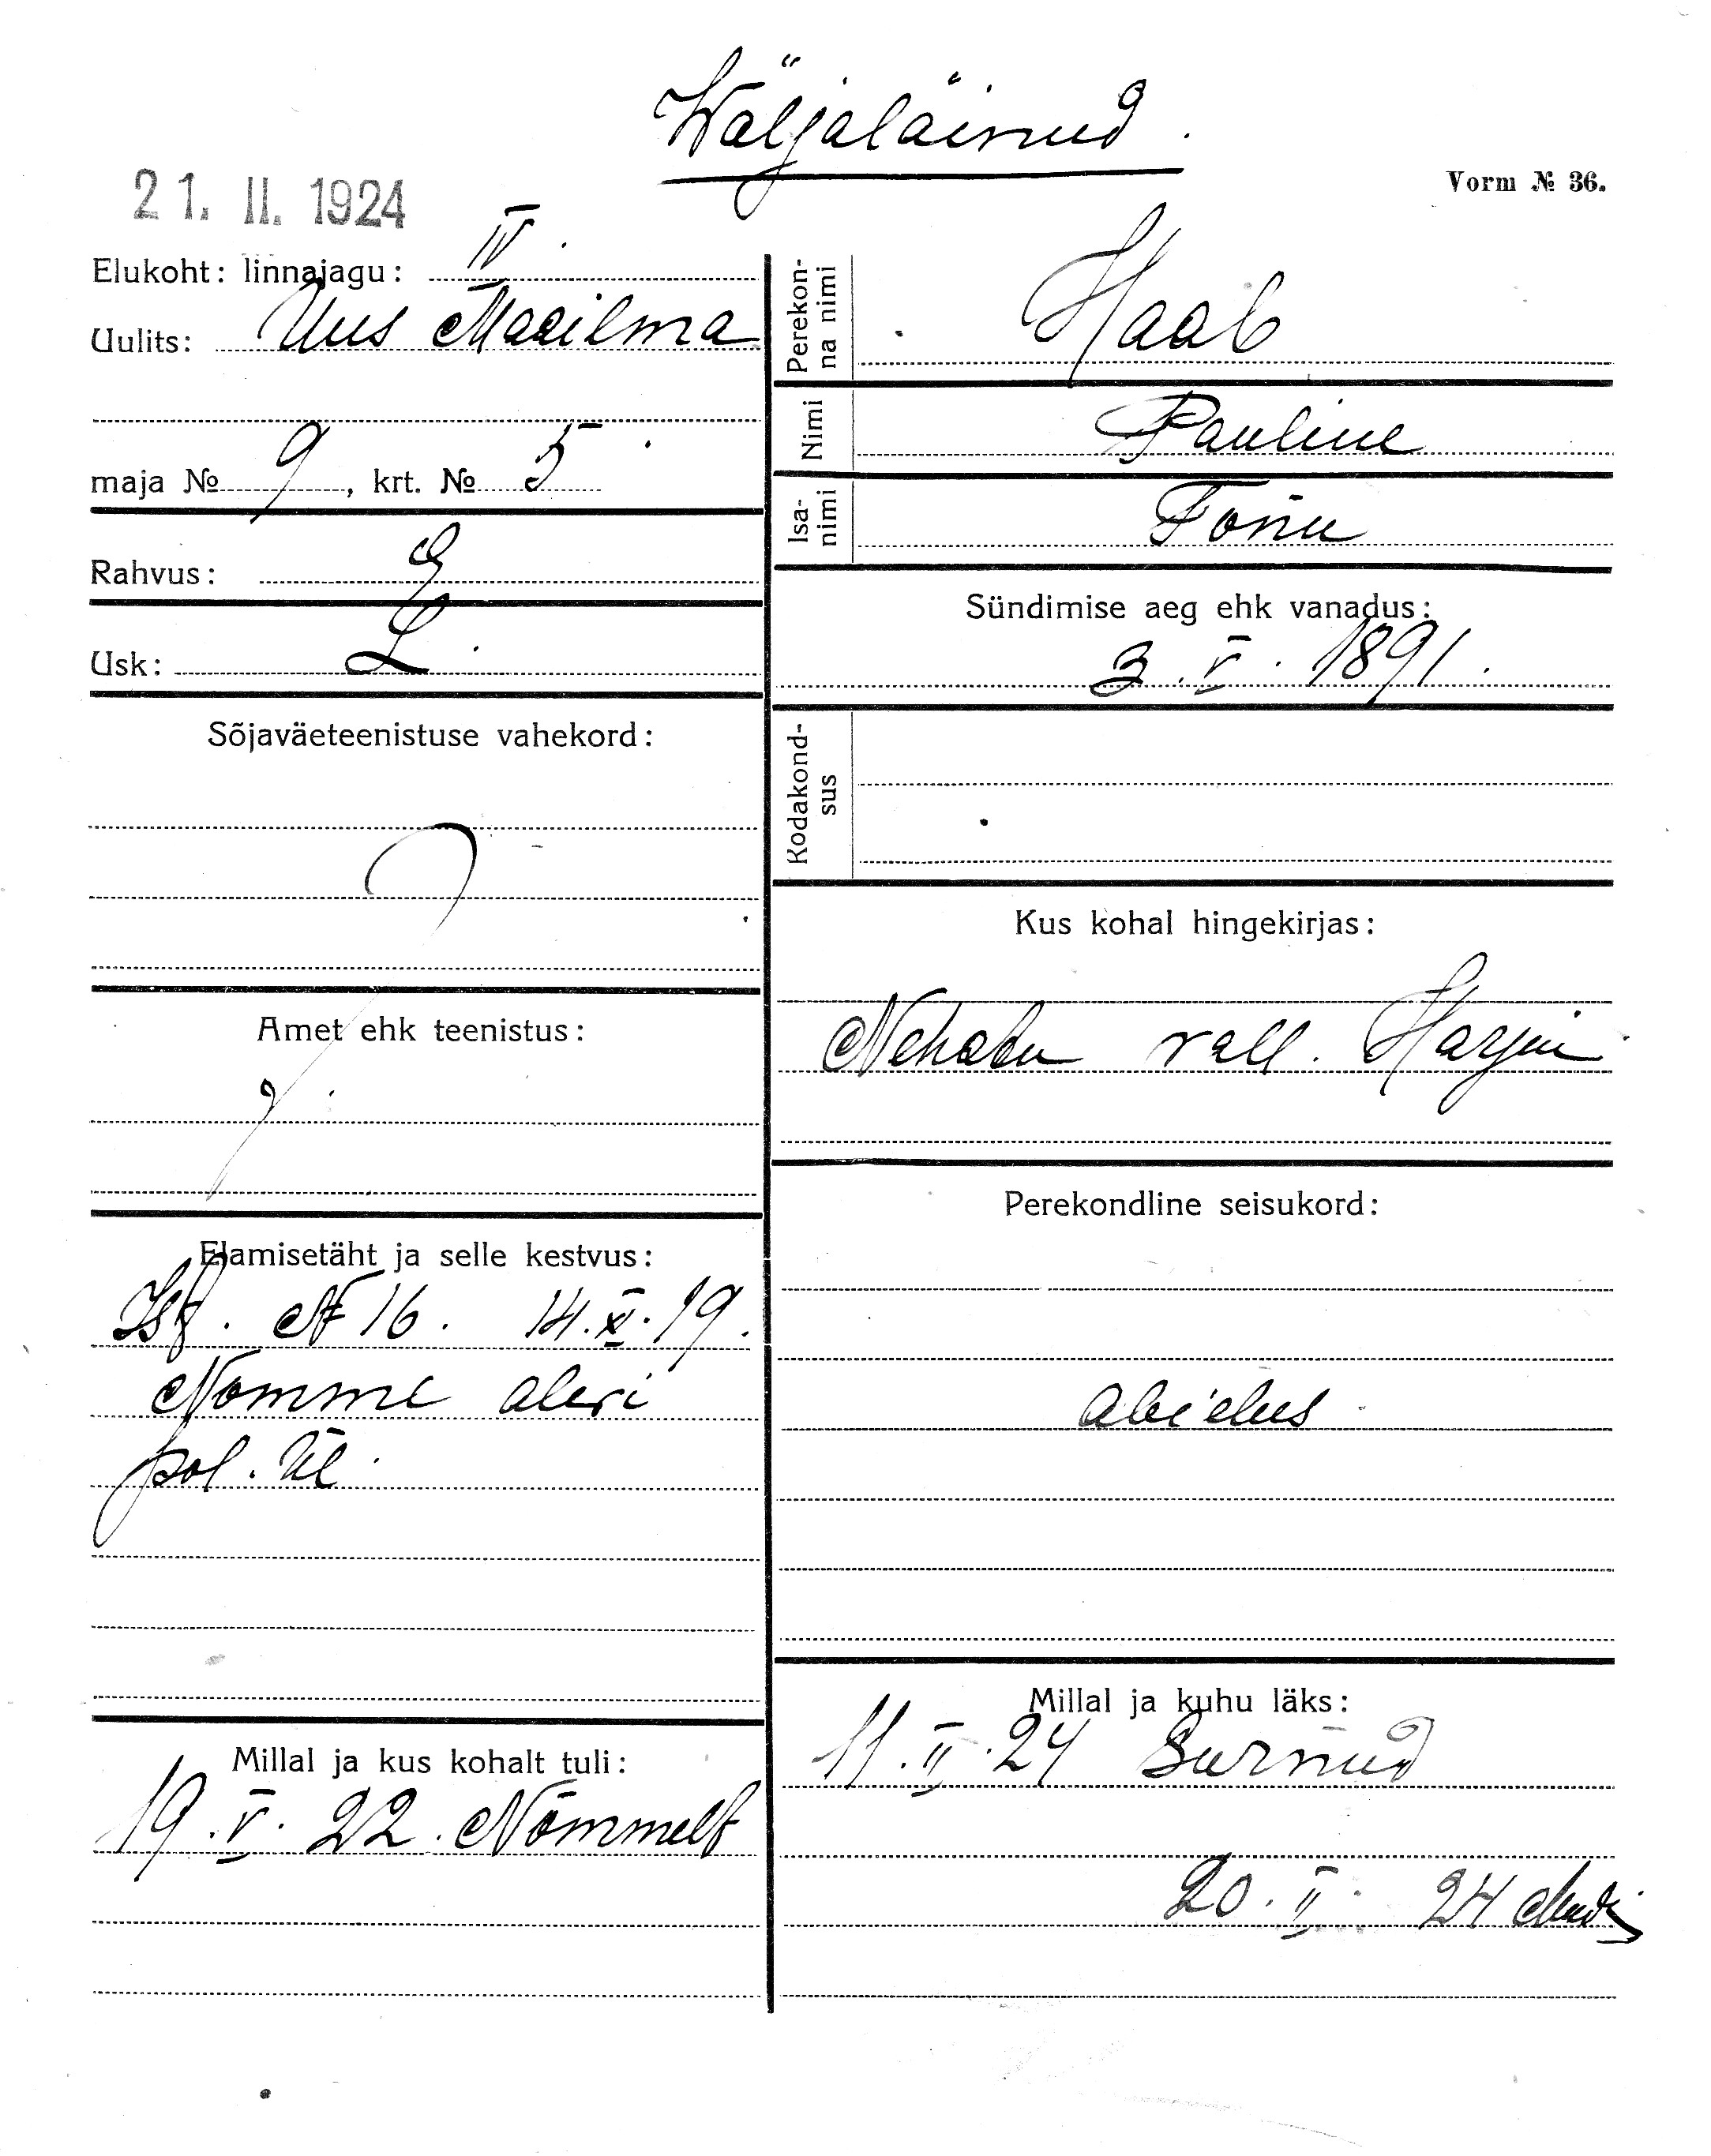 Wäljaläinud.
21. II. 1924
Vorm № 36.
Elukoht: linnajagu: IV.
Uulits: Uus Maailma
maja № 9, krt. № 5.
Rahvus: E
Usk: L.
Sõjaväeteenistuse vahekord:
Amet ehk teenistus:
Elamisetäht ja selle kestvus:
Isf. № 16. 14.XI.19.
Nõmme alevi
pol. ül.
Millal ja kus kohalt tuli:
19.V.22. Nõmmelt
Perekonna nimi
Haab
Nimi
Pauline
Isanimi
Tõnu
Sündimise aeg ehk vanadus:
3.V.1891.
Kodakondsus
Kus kohal hingekirjas:
Nehatu vall. Harju
Perekondline seisukord:
abielus
Millal ja kuhu läks:
11.II.24 Surnud
20.II.24